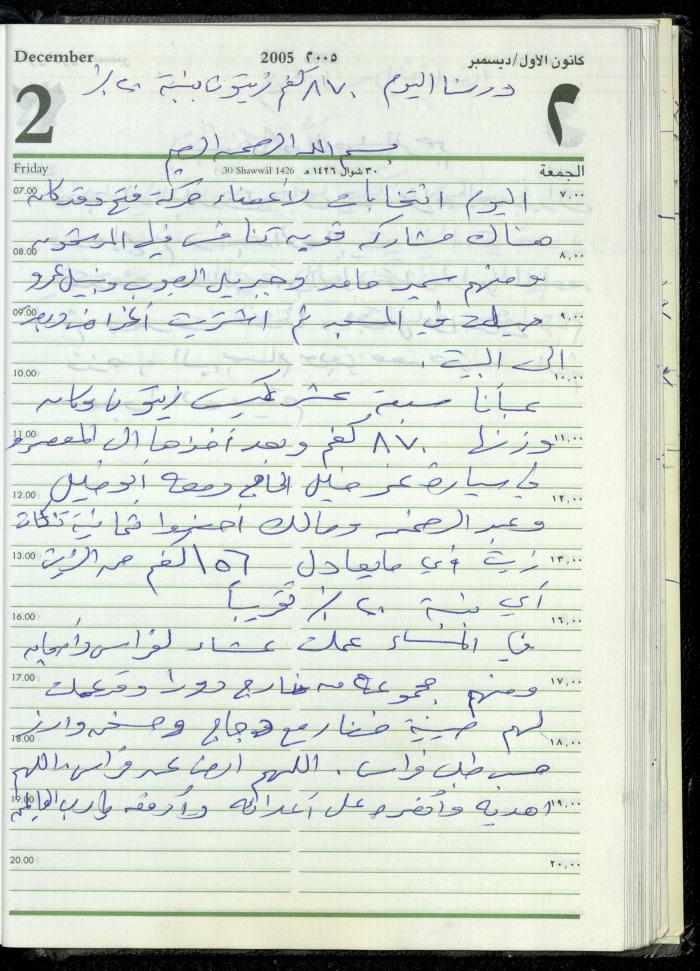 December 2005 ٢٠٠٥ كانون الأول/ديسمبر
درسنا اليوم ٨٧٠ كغم زيتون بنسبة ٢٠٪
2 ٢
بسم الله الرحمن الرحيم
Friday 30 Shawwāl 1426 ٣٠ شوال ١٤٢٦ هـ الجمعة
07.00 اليوم انتخابات لأعضاء حركة فتح وقد كان ٧,٠٠
هناك مشاركة قوية تنافس فيها المرشحون
08.00 ومنهم سمير حامد وجبريل الرجوب ونبيل عمرو ٨,٠٠
09.00 صليت في المسجد ثم اشتريت أغراض وعدت ٩,٠٠
الى البيت .
10.00 ١٠,٠٠
عبأنا سبعة عشر كيس زيتون وكان
11.00 وزنها ٨٧٠ كغم وبعد أخذها الى المعصرة ١١,٠٠
في سيارة خليل الحاج ومعه أبو خليل
12.00 وعبد الرحمن ومالك أحضروا ثمانية تنكات ١٢,٠٠
13.00 زيت أي ما يعادل ١٥٦ كغم من الزيت ١٣,٠٠
أي بنسبة ٢٠٪ تقريباً
16.00 في المساء عملت عشاء لفراس وأصحابه ١٦,٠٠
17.00 ومنهم مجموعة من خارج دورا وقد عملت ١٧,٠٠
لهم صينية خضار مع دجاج وصحن وارز
18.00 حسب طلب فراس . اللهم ارضا عن فراس اللهم ١٨,٠٠
19.00 اهديه وأنصره على أعدائه وأوفقه يا رب العالمين ١٩,٠٠
20.00 ٢٠,٠٠